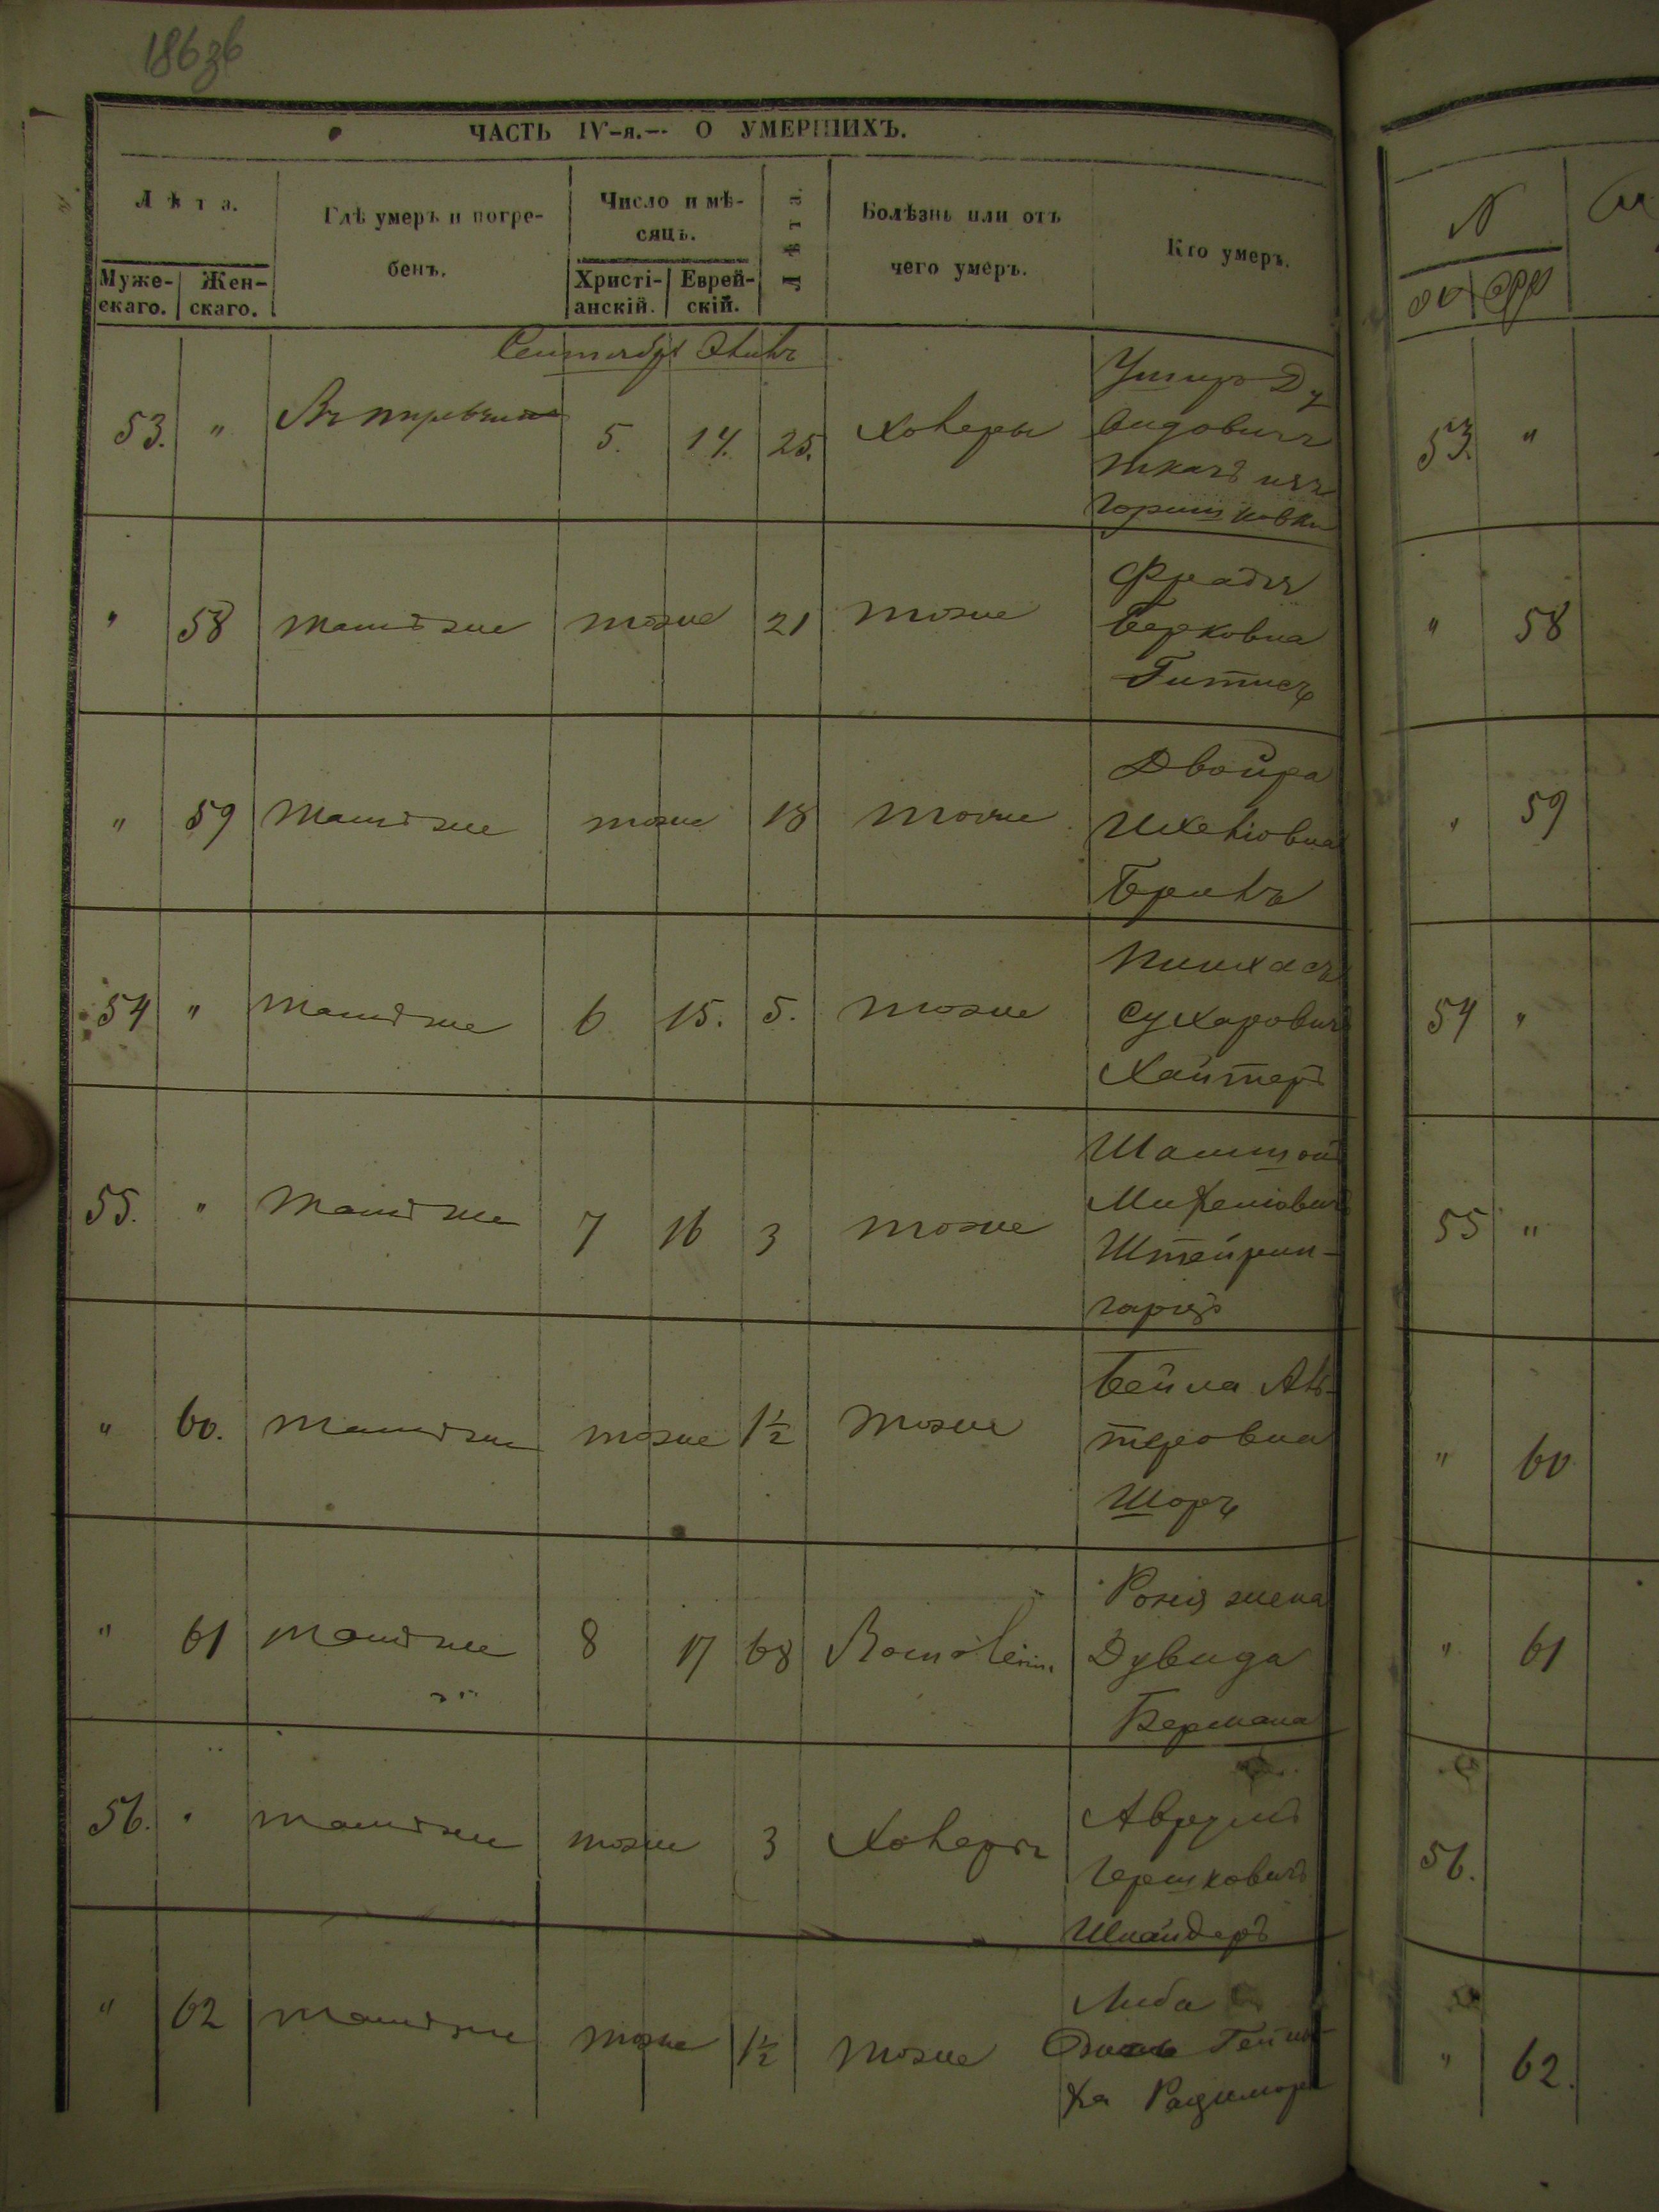 186зв
ЧАСТЬ IV-я.-- О УМЕРШИХЪ.
Лѣта.
Муже-
скаго.
Жен-
скаго.
Гдѣ умеръ и погре-
бенъ.
Число и мѣ-
сяцъ.
Христі-
анскій.
Еврей-
скій.
Лѣта.
Болѣзнь или отъ
чего умеръ.
Кто умеръ.
Сентябрь
53. " Въ 5. 14. 25. Холеры
Ушеръ Ду
видовичъ
Ткачъ изъ
Горишковки
" 58 тамъже тоже 21 тоже
Фрадя
Берковна
Гитисъ
" 59 тамъже тоже 18 тоже
Двойра
Ихеліовна
Бриль
54 " тамъже 6 15. 5. тоже
Пинхасъ
Сухаровичъ
Хайтеръ
55. " тамъже 7 16 3 тоже
Михеліовичъ
Штейрин-
гарцъ
" 60. тамъже тоже 1½ тоже
Бейла Аль-
теровна
Шоръ
" 61 тамъже 8 17 68
жена
Дувида
Бермана
56. " тамъже тоже 3 Холеры
Аврумъ
Гершковичъ
Шнайдеръ
" 62 тамъже тоже 1½ тоже
Либа
53. "
" 58
" 59
54 "
55 "
" 60
" 61
56.
" 62.